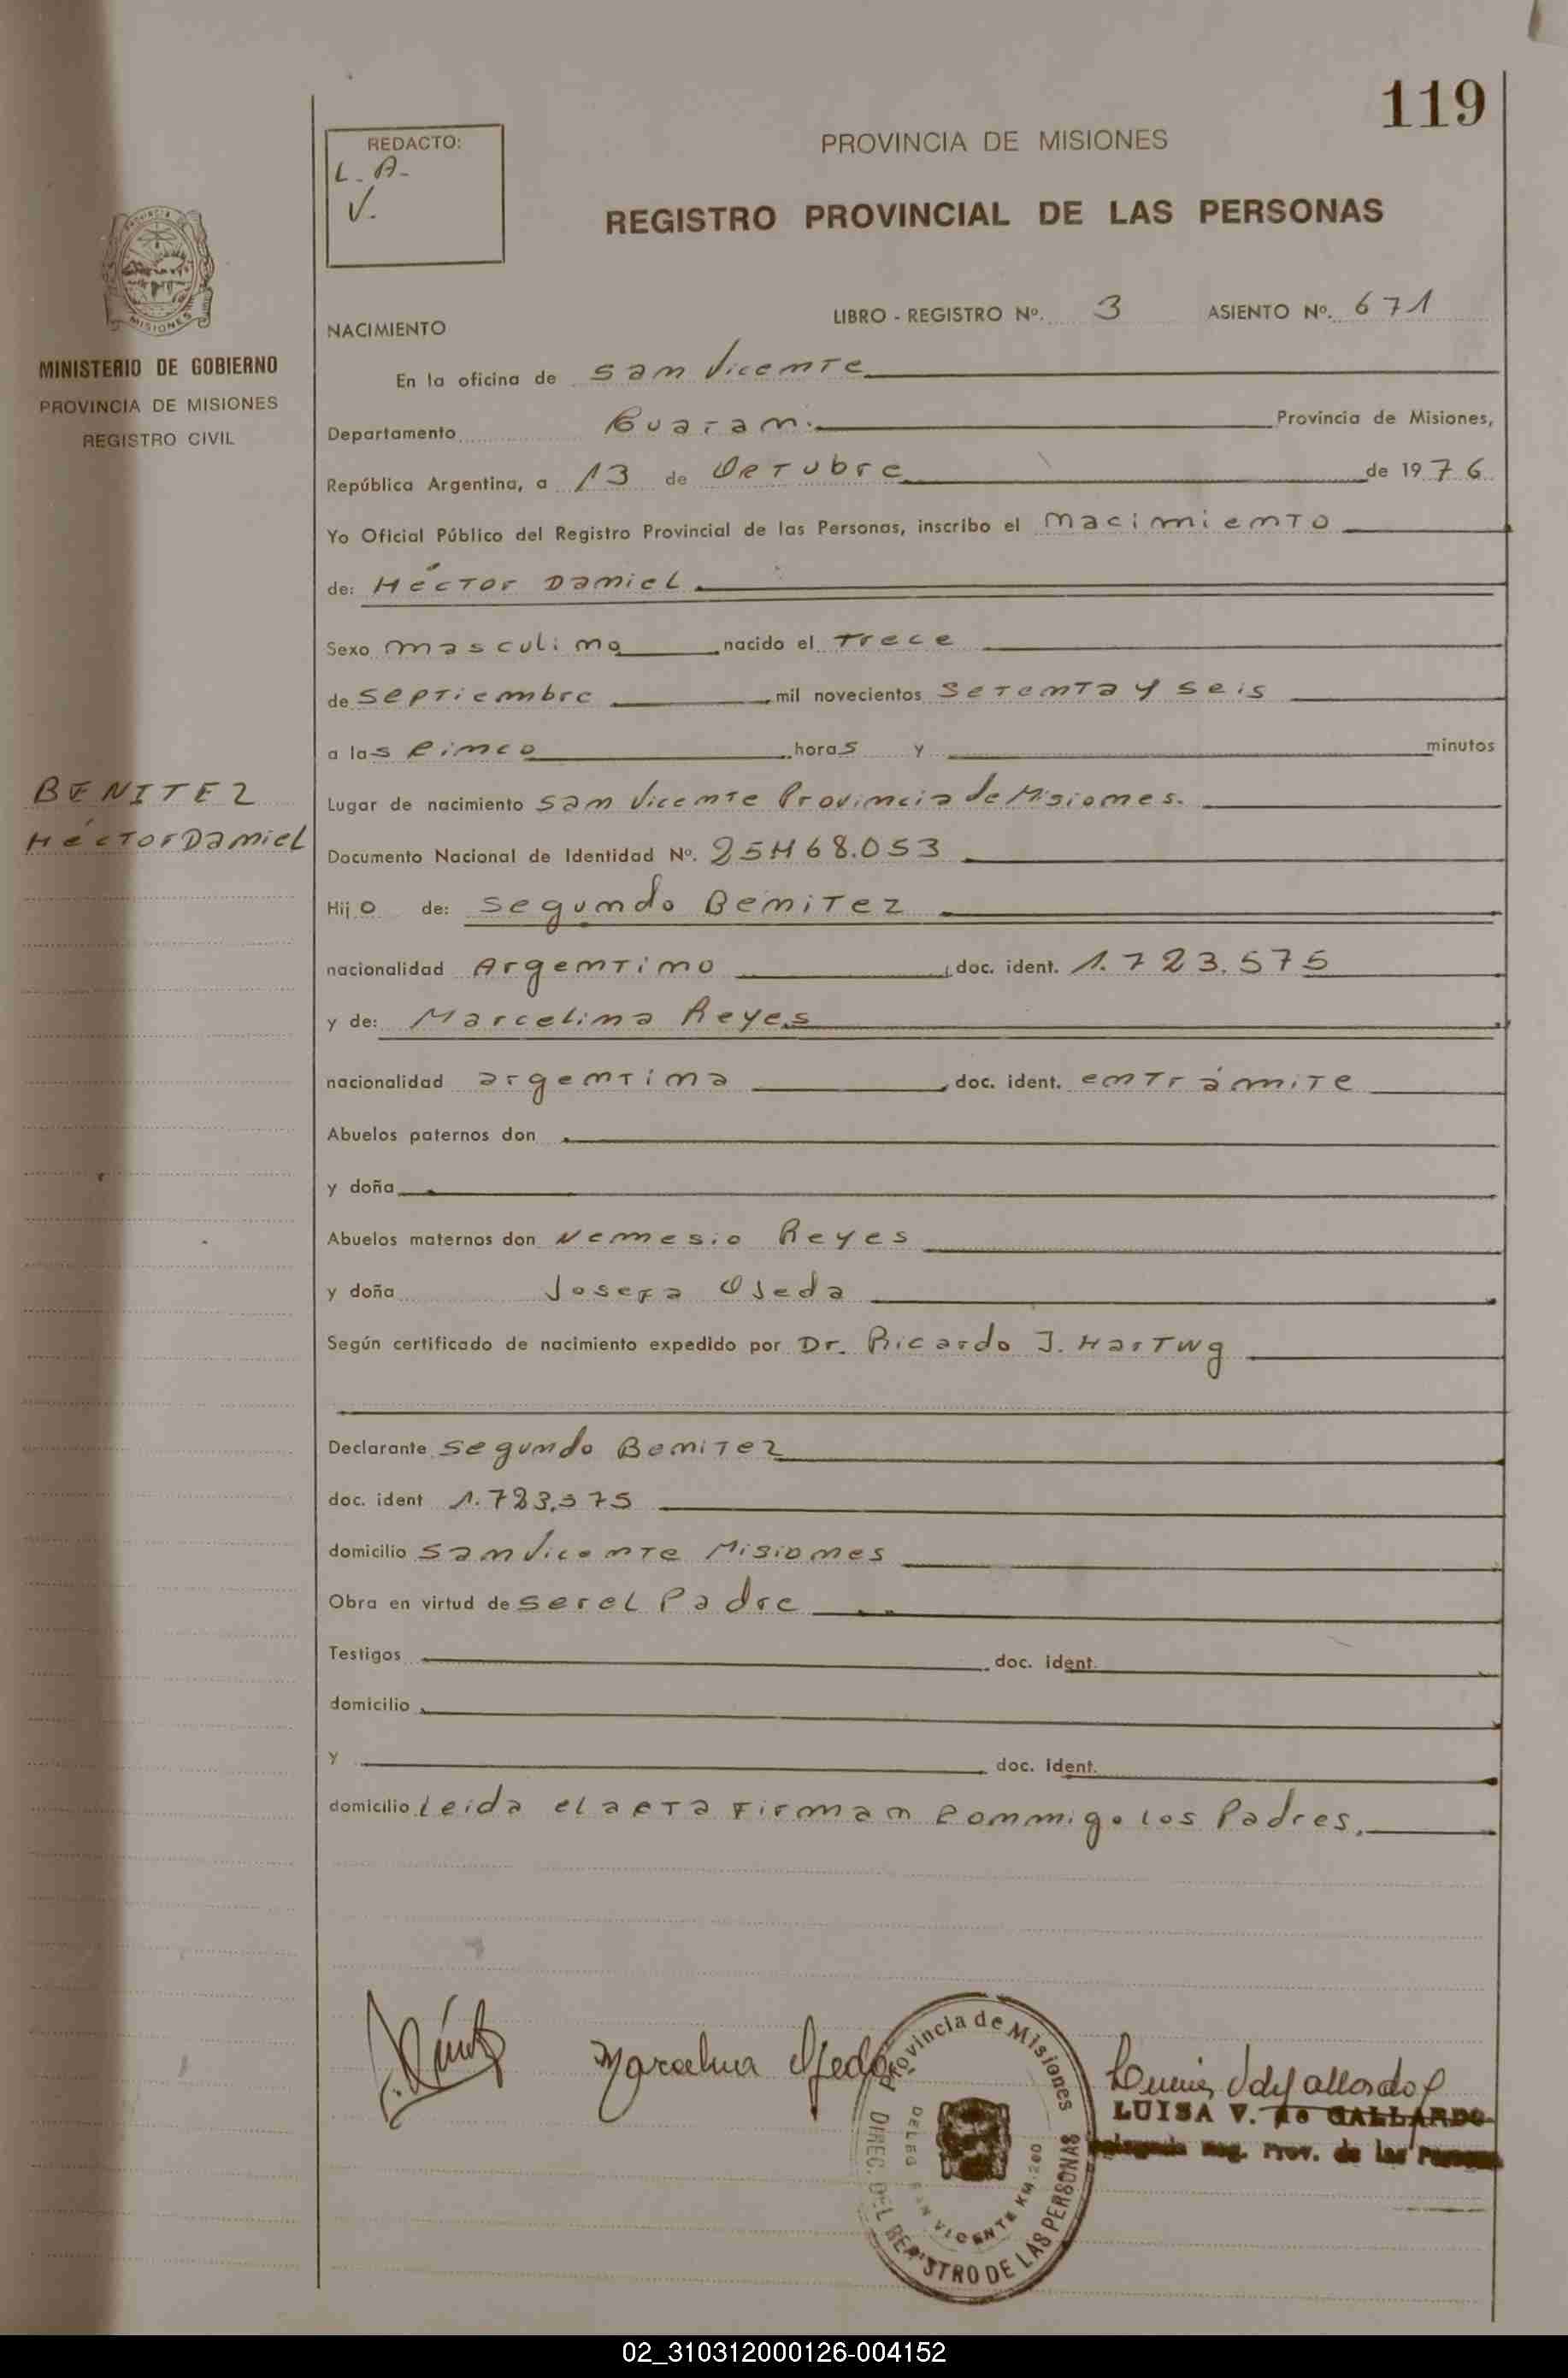 119
REDACTO:
L. A.
V.
PROVINCIA DE MISIONES
REGISTRO PROVINCIAL DE LAS PERSONAS
MISIONES
MINISTERIO DE GOBIERNO
PROVINCIA DE MISIONES
REGISTRO CIVIL
LIBRO - REGISTRO Nº. 3 ASIENTO Nº. 671
NACIMIENTO
En la oficina de San Vicente
Departamento Guaraní Provincia de Misiones,
República Argentina, a 13 de Octubre de 1976
Yo Oficial Público del Registro Provincial de las Personas, inscribo el nacimiento
de: Héctor Daniel
Sexo masculino nacido el trece
de septiembre mil novecientos setenta y seis
a las cinco horas y minutos
BENITEZ
Héctor Daniel
Lugar de nacimiento San Vicente Provincia de Misiones.
Documento Nacional de Identidad Nº. 25.468.053
Hijo de: Segundo Benitez
nacionalidad Argentino doc. ident. 1.723.575
y de: Marcelina Reyes
nacionalidad argentina doc. ident. en trámite
Abuelos paternos don
y doña
Abuelos maternos don Nemesio Reyes
y doña Josefa Ojeda
Según certificado de nacimiento expedido por Dr. Ricardo J. Hartwg
Declarante Segundo Benitez
doc. ident 1.723.575
domicilio San Vicente Misiones
Obra en virtud de ser el Padre
Testigos doc. ident.
domicilio
y doc. ident.
domicilio Leida el acta firman conmigo los Padres.
Marcelina Ojeda
Provincia de Misiones
DIREC. DEL REGISTRO DE LAS PERSONAS
DELEG SAN VICENTE KM. 280
LUISA V. de GALLARDO
Delegada Reg. Prov. de las Personas
02_310312000126-004152